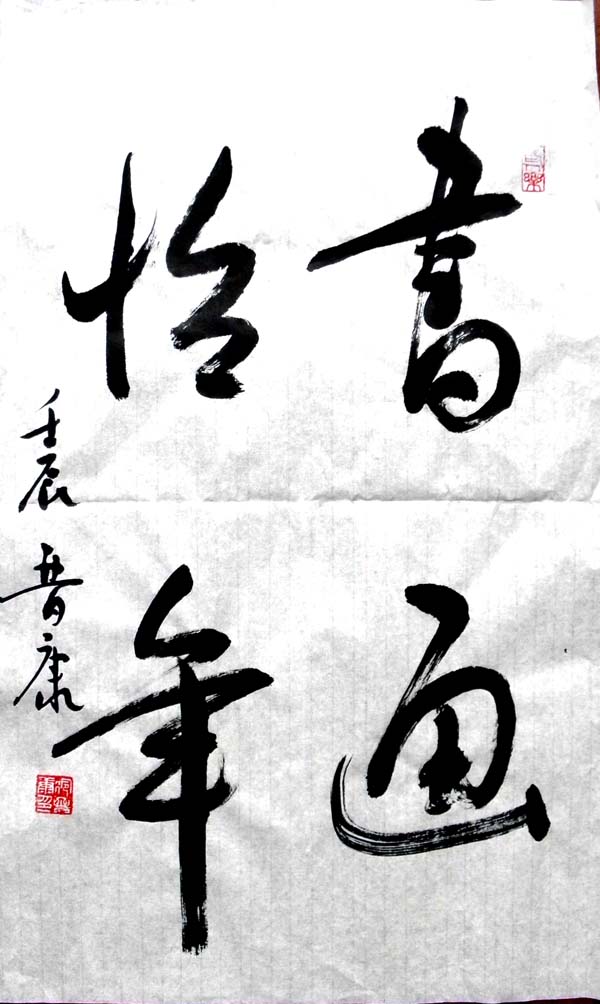 書画
怡年
壬辰 晋康